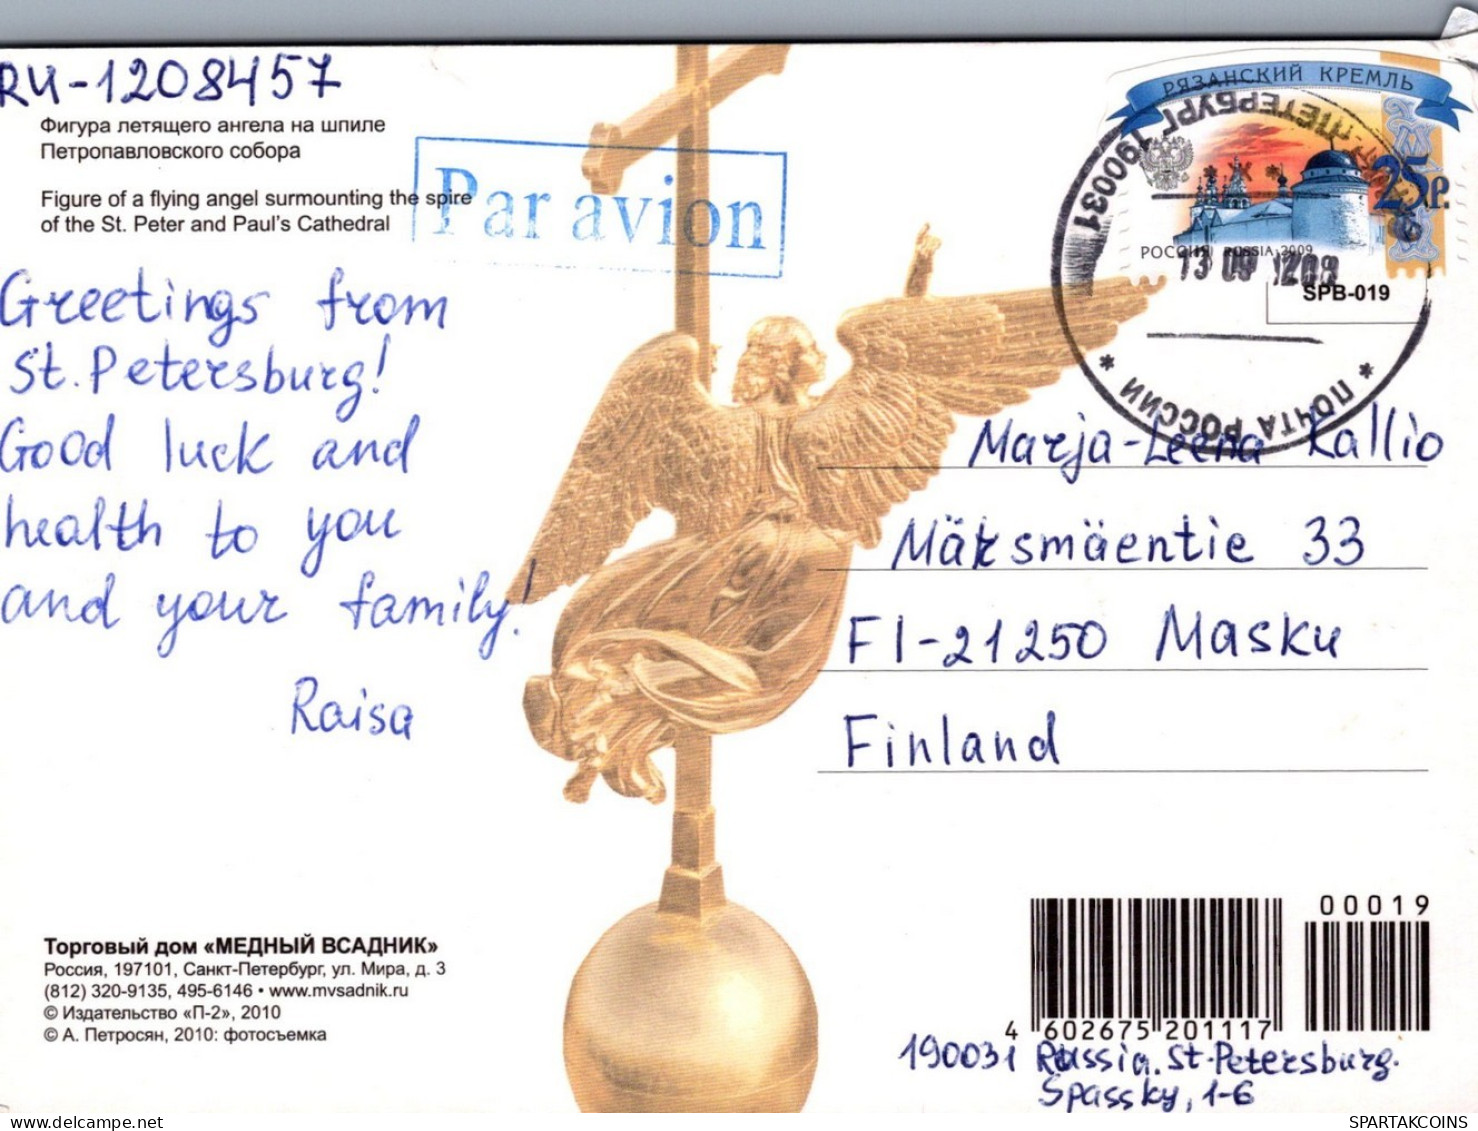 RU-1208457
Фигура летящего ангела на шпиле
Петропавловского собора
Figure of a flying angel surmounting the spire
of the St. Peter and Paul's Cathedral
Par avion
РЯЗАНСКИЙ КРЕМЛЬ
25р.
РОССИЯ RUSSIA 2009
190031
13 09 1208
SPB-019
* ПОЧТА РОССИИ *
Greetings from
St. Petersburg!
Good luck and
health to you
and your family!
Raisa
Marja-Leena Kallio
Mäksmäentie 33
FI-21250 Masku
Finland
Торговый дом «МЕДНЫЙ ВСАДНИК»
Россия, 197101, Санкт-Петербург, ул. Мира, д. 3
(812) 320-9135, 495-6146 • www.mvsadnik.ru
© Издательство «П-2», 2010
© А. Петросян, 2010: фотосъемка
00019
4 602675 201117
190031 Russia. St-Petersburg.
Spassky, 1-6
SPARTAKCOINS
delcampe.net